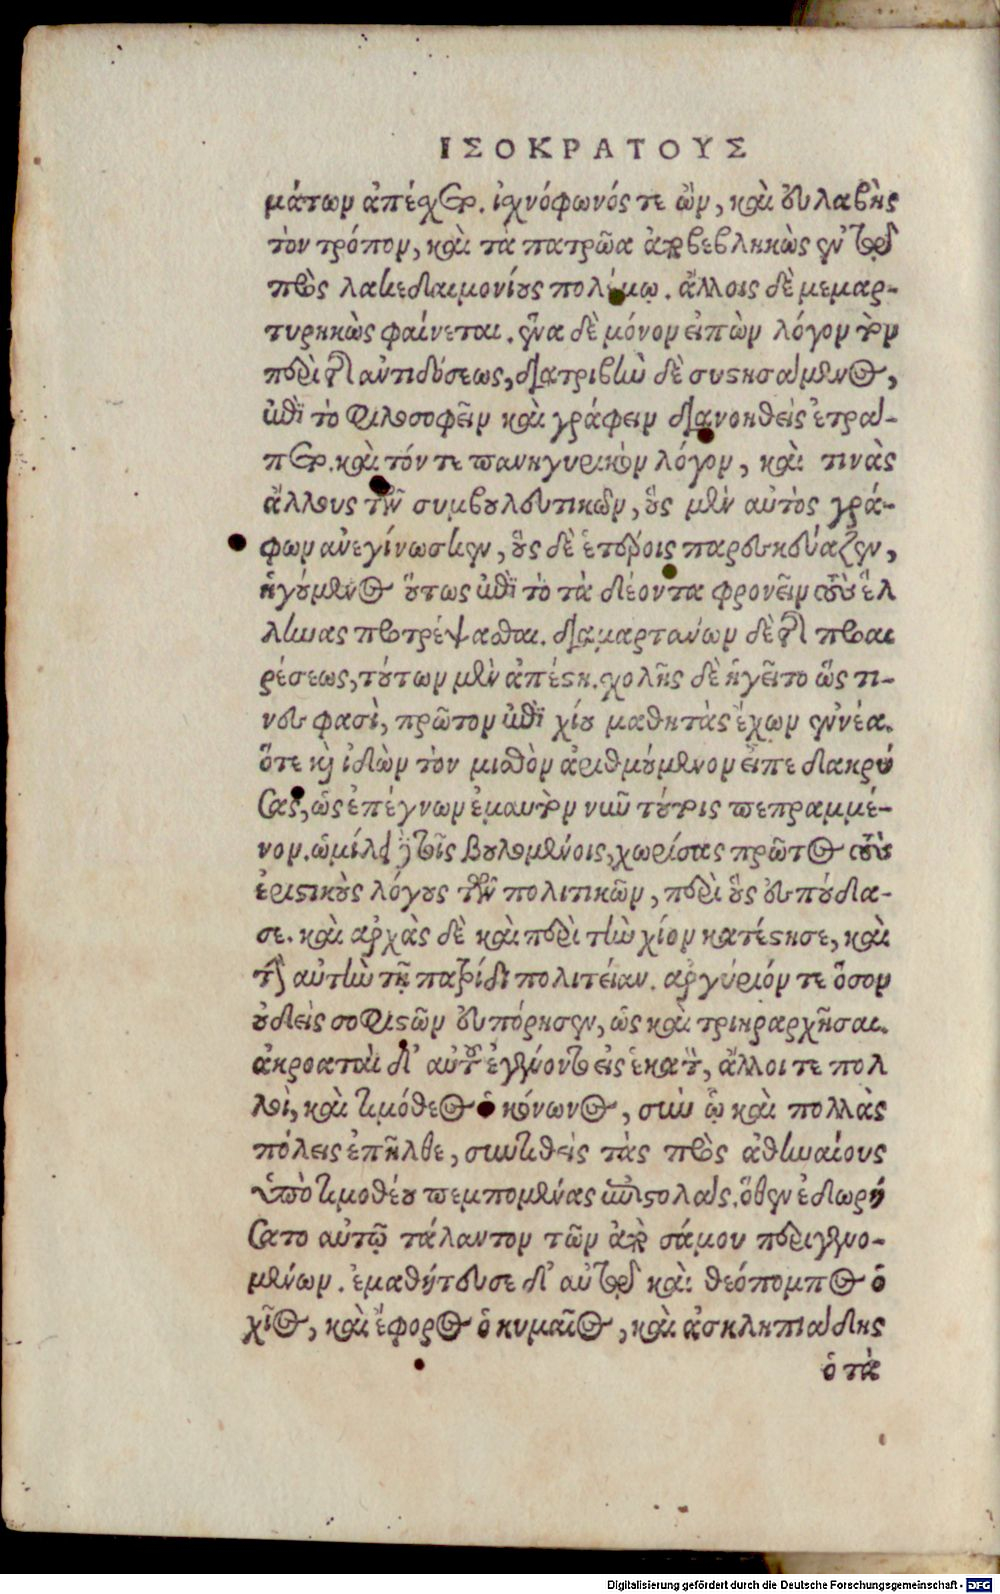 ΙΣΟΚΡΑΤΟΥΣ
μάτων ἀπέχετο. ἰχνόφωνός τε ὢν, καὶ εὐλαβὴς
τὸν τρόπον, καὶ τὰ πατρῶα ἀποβεβληκὼς ἐν τῷ
πρὸς λακεδαιμονίους πολέμῳ. ἄλλοις δὲ μεμαρ-
τυρηκὼς φαίνεται. ἕνα δὲ μόνον εἰπὼν λόγον τὸν
περὶ τῆς ἀντιδόσεως, διατριβὴν δὲ συστησάμενος,
ἐπὶ τὸ φιλοσοφεῖν καὶ γράφειν ἃ διανοηθεὶς ἐτρά-
πετο. καὶ τόν τε πανηγυρικὸν λόγον, καὶ τινὰς
ἄλλους τῶν συμβουλευτικῶν, οὓς μὲν αὐτὸς γρά-
φων ἀνεγίνωσκεν, οὓς δὲ ἑτέροις παρεσκεύαζεν,
ἡγούμενος οὕτως ἐπὶ τὸ τὰ δέοντα φρονεῖν τοὺς ἕλ
ληνας προτρέψασθαι. διαμαρτάνων δὲ τῆς προαι
ρέσεως, τούτων μὲν ἀπέστη. σχολῆς δὲ ἡγεῖτο ὥς τι-
νες φασὶ, πρῶτον ἐπὶ χίου μαθητὰς ἔχων ἐννέα.
ὅτε καὶ ἰδὼν τὸν μισθὸν ἀριθμούμενον εἶπε δακρύ
σας, ὡς ἐπέγνων ἐμαυτὸν νῦν τούτοις πεπραμμέ-
νον. ὡμίλει τοῖς βουλομένοις, χωρίσας πρῶτος τοὺς
ἐριστικοὺς λόγους τῶν πολιτικῶν, περὶ οὓς ἐσπούδα-
σε. καὶ ἀρχὰς δὲ καὶ περὶ τὴν χίον κατέστησε, καὶ
τὴν αὐτὴν τῇ πατρίδι πολιτείαν. ἀργύριόν τε ὅσον
οὐδεὶς σοφιστῶν εὐπόρησεν, ὡς καὶ τριηραρχῆσαι.
ἀκροαταὶ δ' αὐτοῦ ἐγένοντο εἰς ἑκατὸν, ἄλλοι τε πολ
λοὶ, καὶ τιμόθεος ὁ κόνωνος, σὺν ᾧ καὶ πολλὰς
πόλεις ἐπῆλθε, συντιθεὶς τὰς πρὸς ἀθηναίους
ὑπὸ τιμοθέου πεμπομένας ἐπιστολάς. ὅθεν ἐδωρή
σατο αὐτῷ τάλαντον τῶν ἀπὸ σάμου περιγενο-
μένων. ἐμαθήτευσε δ' αὐτῷ καὶ θεόπομπος ὁ
χῖος, καὶ ἔφορος ὁ κυμαῖος, καὶ ἀσκληπιάδης
ὁ τὰ
Digitalisierung gefördert durch die Deutsche Forschungsgemeinschaft - DFG